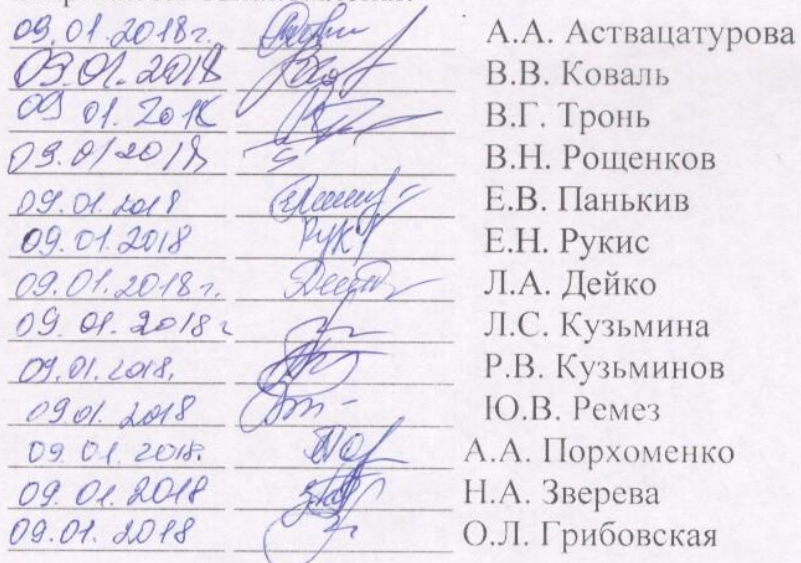 09.01.2018г. А.А. Аствацатурова
09.01.2018 В.В. Коваль
09 01.2018 В.Г. Тронь
09.01.2018 В.Н. Рощенков
09.01.2018 Е.В. Панькив
09.01.2018 Рук Е.Н. Рукис
09.01.2018г. Л.А. Дейко
09.01.2018г Л.С. Кузьмина
09.01.2018. Р.В. Кузьминов
09.01.2018 Ю.В. Ремез
09.01.2018. А.А. Порхоменко
09.01.2018 Н.А. Зверева
09.01.2018 О.Л. Грибовская